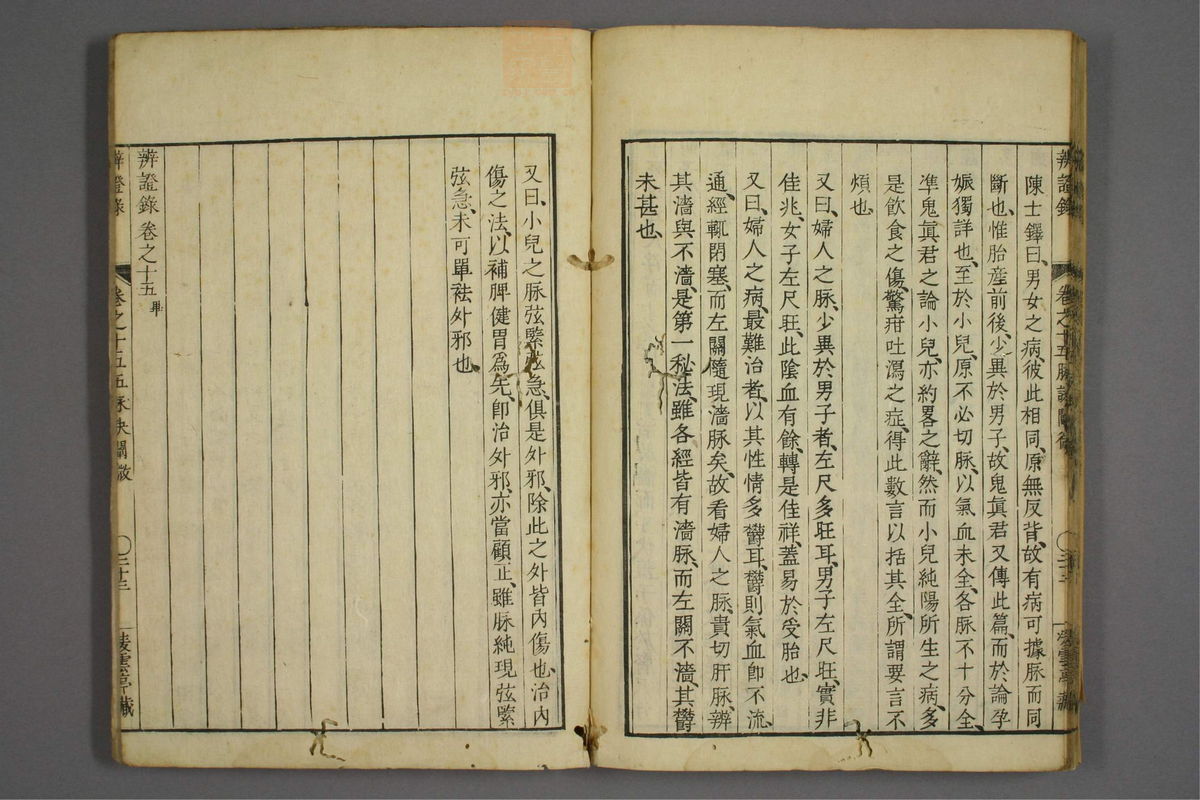 辨證錄
卷之十五脉訣闡微
陳士鐸曰、男女之病、彼此相同、原無反背、故有病可據脉而同
斷也、惟胎産前後、少異於男子、故鬼眞君又傳此篇、而於論孕
娠獨詳也、至於小兒、原不必切脉、以氣血未全、各脉不十分全、
凖鬼眞君之論小兒、亦約畧之辭、然而小兒純陽所生之病、多
是飲食之傷、驚疳吐瀉之症、得此數言以括其全、所謂要言不
煩也、
又曰、婦人之脉、少異於男子者、左尺多旺耳、男子左尺旺、實非
佳兆、女子左尺旺、此陰血有餘、轉是佳祥、蓋易於受胎也、
又曰、婦人之病、最難治者、以其性情多鬱耳、鬱則氣血即不流
通、經輒閉塞、而左關隨現濇脉矣、故看婦人之脉、貴切肝脉、辨
其濇與不濇、是第一秘法、雖各經皆有濇脉、而左關不濇、其鬱
未甚也、
又曰、小兒之脉弦緊弦急、俱是外邪、除此之外皆內傷也、治內
傷之法、以補脾健胃爲先、即治外邪、亦當顧正、雖脉純現弦緊
弦急、未可單祛外邪也、
辨證錄 卷之十五 畢
辨證錄
卷之十五 脉訣闡微
凌雲亭藏